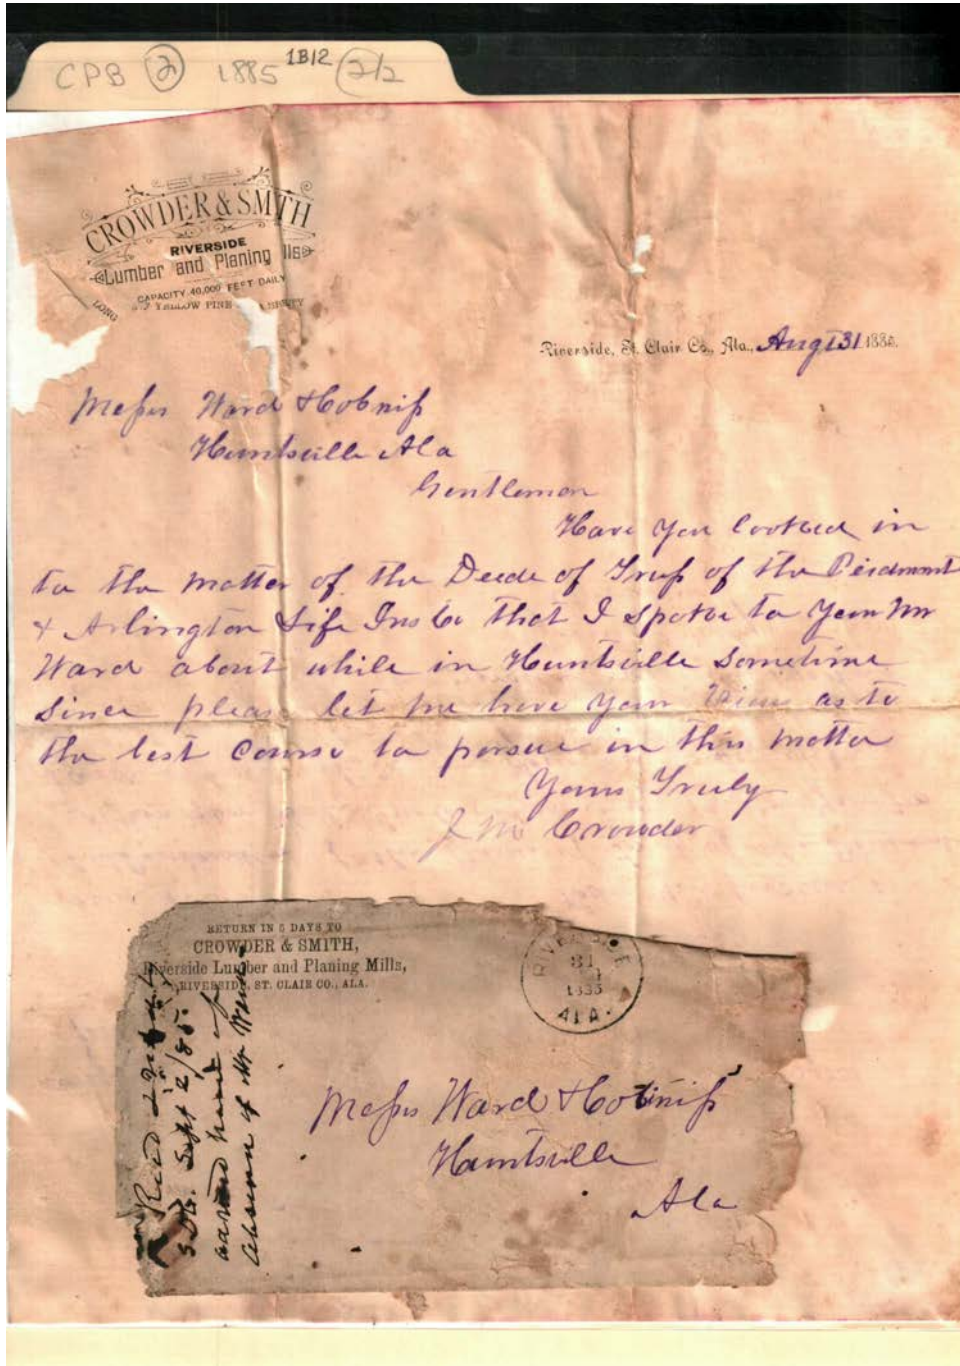 CPB ② 1885 1B12 2/2
CROWDER & SMITH
RIVERSIDE
Lumber and Planing lls
CAPACITY 40,000 FEET DAILY
LONG YELLOW PINE
Riverside, St. Clair Co., Ala., Augt 31 1885.
Messrs Ward & Cobniss
Huntsville Ala
Gentlemen
Have you looked in
to the matter of the Deede of Trust of the Piedmont
& Arlington Life Ins Co that I spoke to you Mr
Ward about while in Huntsville sometime
since pleas let me have your Views as to
the best course to persue in this matter
Yours Truly
J M Crowder
RETURN IN 5 DAYS TO
CROWDER & SMITH,
Riverside Lumber and Planing Mills,
RIVERSIDE, ST. CLAIR CO., ALA.
RIVERSIDE
31
1885
ALA.
Messrs Ward & Cobniss
Huntsville
Ala
Recd
Sept 2/85.
absence of Mr